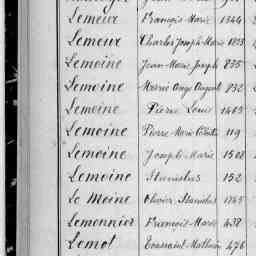 Lemeur François Marie 1344
Lemeur Charles Joseph Marie 1835
Lemoine Jean Marie Joseph 835
Lemoine Marie Ange Auguste 832
Lemoine Pierre Louis 1403
Lemoine Pierre Marie 119
Lemoine Joseph Marie 1508
Lemoine Stanislas 152
Le Moine Olivier Stanislas 1245
Lemonnier François Marie 438
Lemot Toussaint Mathurin 476